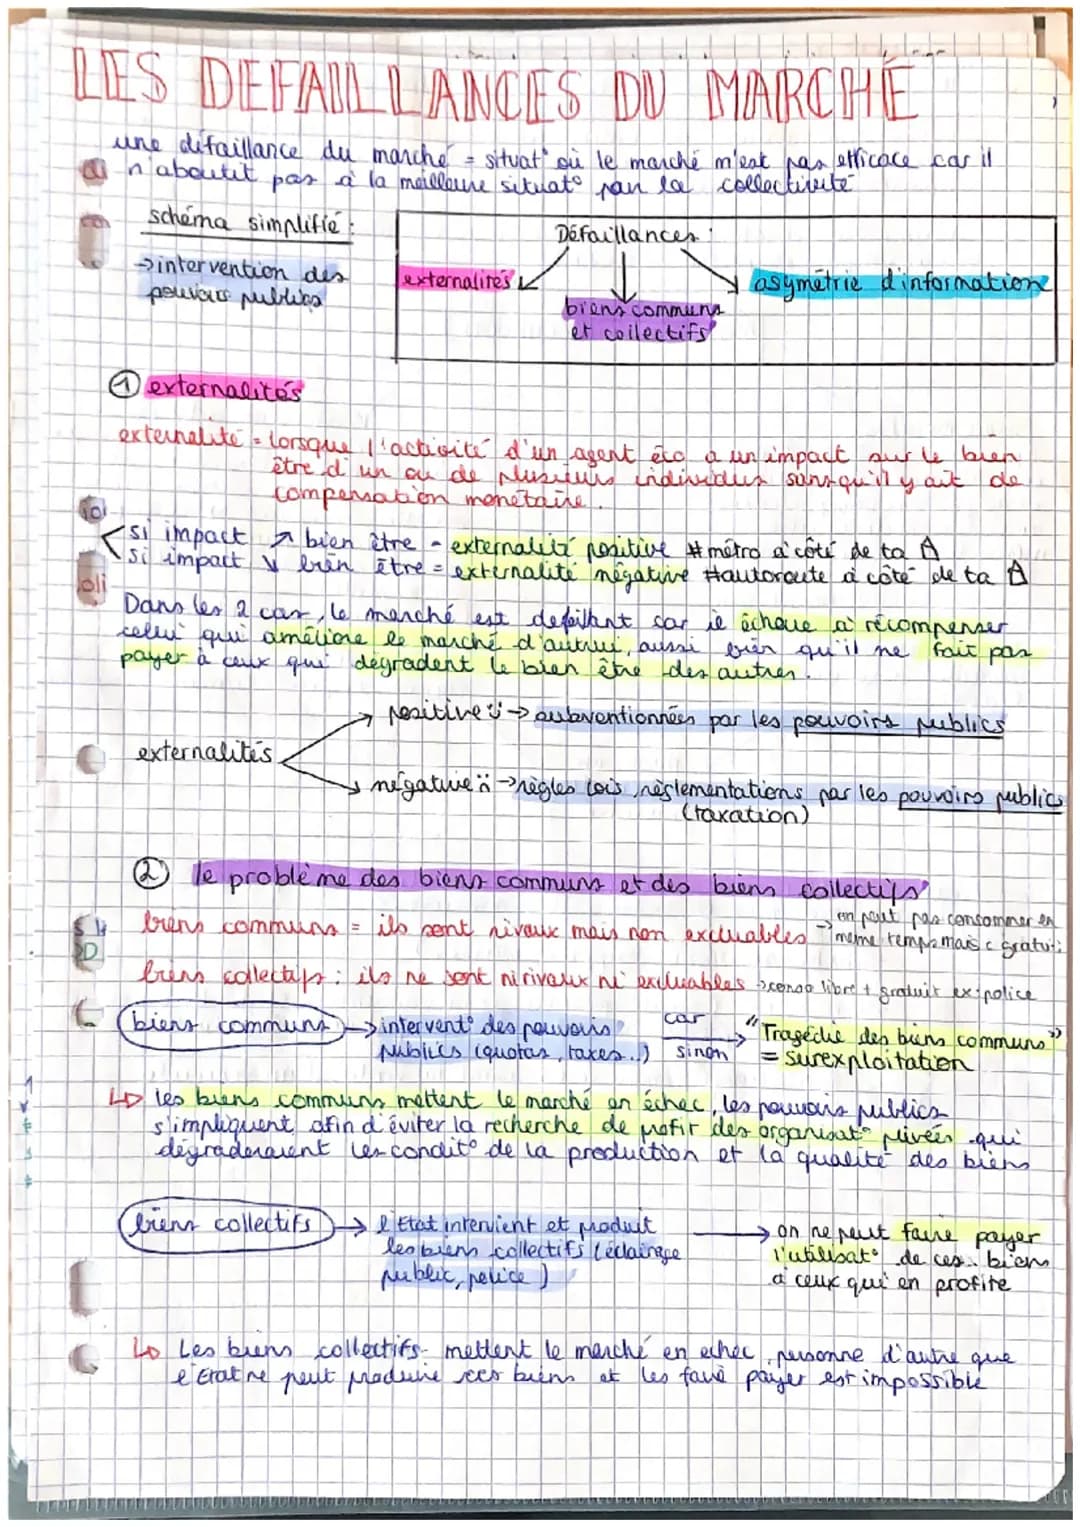 LES DEFAILLANCES DU MARCHÉ
une défaillance du marché = situat° où le marché n'est pas efficace car il
n'aboutit pas à la meilleure situat° pour la collectivité
schéma simplifié :
→ intervention des
pouvoirs publics
Défaillances :
externalités
biens communs
et collectifs
asymétrie d'information
① externalités
externalité = lorsque l'activité d'un agent éco a un impact sur le bien
être d'un ou de plusieurs individus sans qu'il y ait de
compensation monétaire.
si impact ↗ bien être = externalité positive #métro à côté de ta
si impact ↘ bien être = externalité négative #autoroute à côté de ta
Dans les 2 cas, le marché est défaillant car il échoue à récompenser
celui qui améliore le marché d'autrui, aussi bien qu'il ne fait pas
payer à ceux qui dégradent le bien être des autres.
externalités
positive → subventionnées par les pouvoirs publics
négative → règles lois, règlementations par les pouvoirs publics
(taxation)
② le problème des biens communs et des biens collectifs
biens communs = ils sont rivaux mais non excluables → on peut pas consommer en
même temps mais c gratuit
biens collectifs : ils ne sont ni rivaux ni excluables → conso libre + gratuit ex : police
biens communs → intervent° des pouvoirs
publics (quotas, taxes..)
car
sinon
"Tragédie des biens communs"
= surexploitation
↳ les biens communs mettent le marché en échec, les pouvoirs publics
s'impliquent afin d'éviter la recherche de profit des organisat° privées qui
dégraderaient les condit° de la production et la qualité des biens
biens collectifs → l'Etat intervient et produit
les biens collectifs (éclairage
public, police)
→ on ne peut faire payer
l'utilisat° de ces biens
à ceux qui en profite
↳ Les biens collectifs mettent le marché en échec, personne d'autre que
l'Etat ne peut produire ces biens et les faire payer est impossible